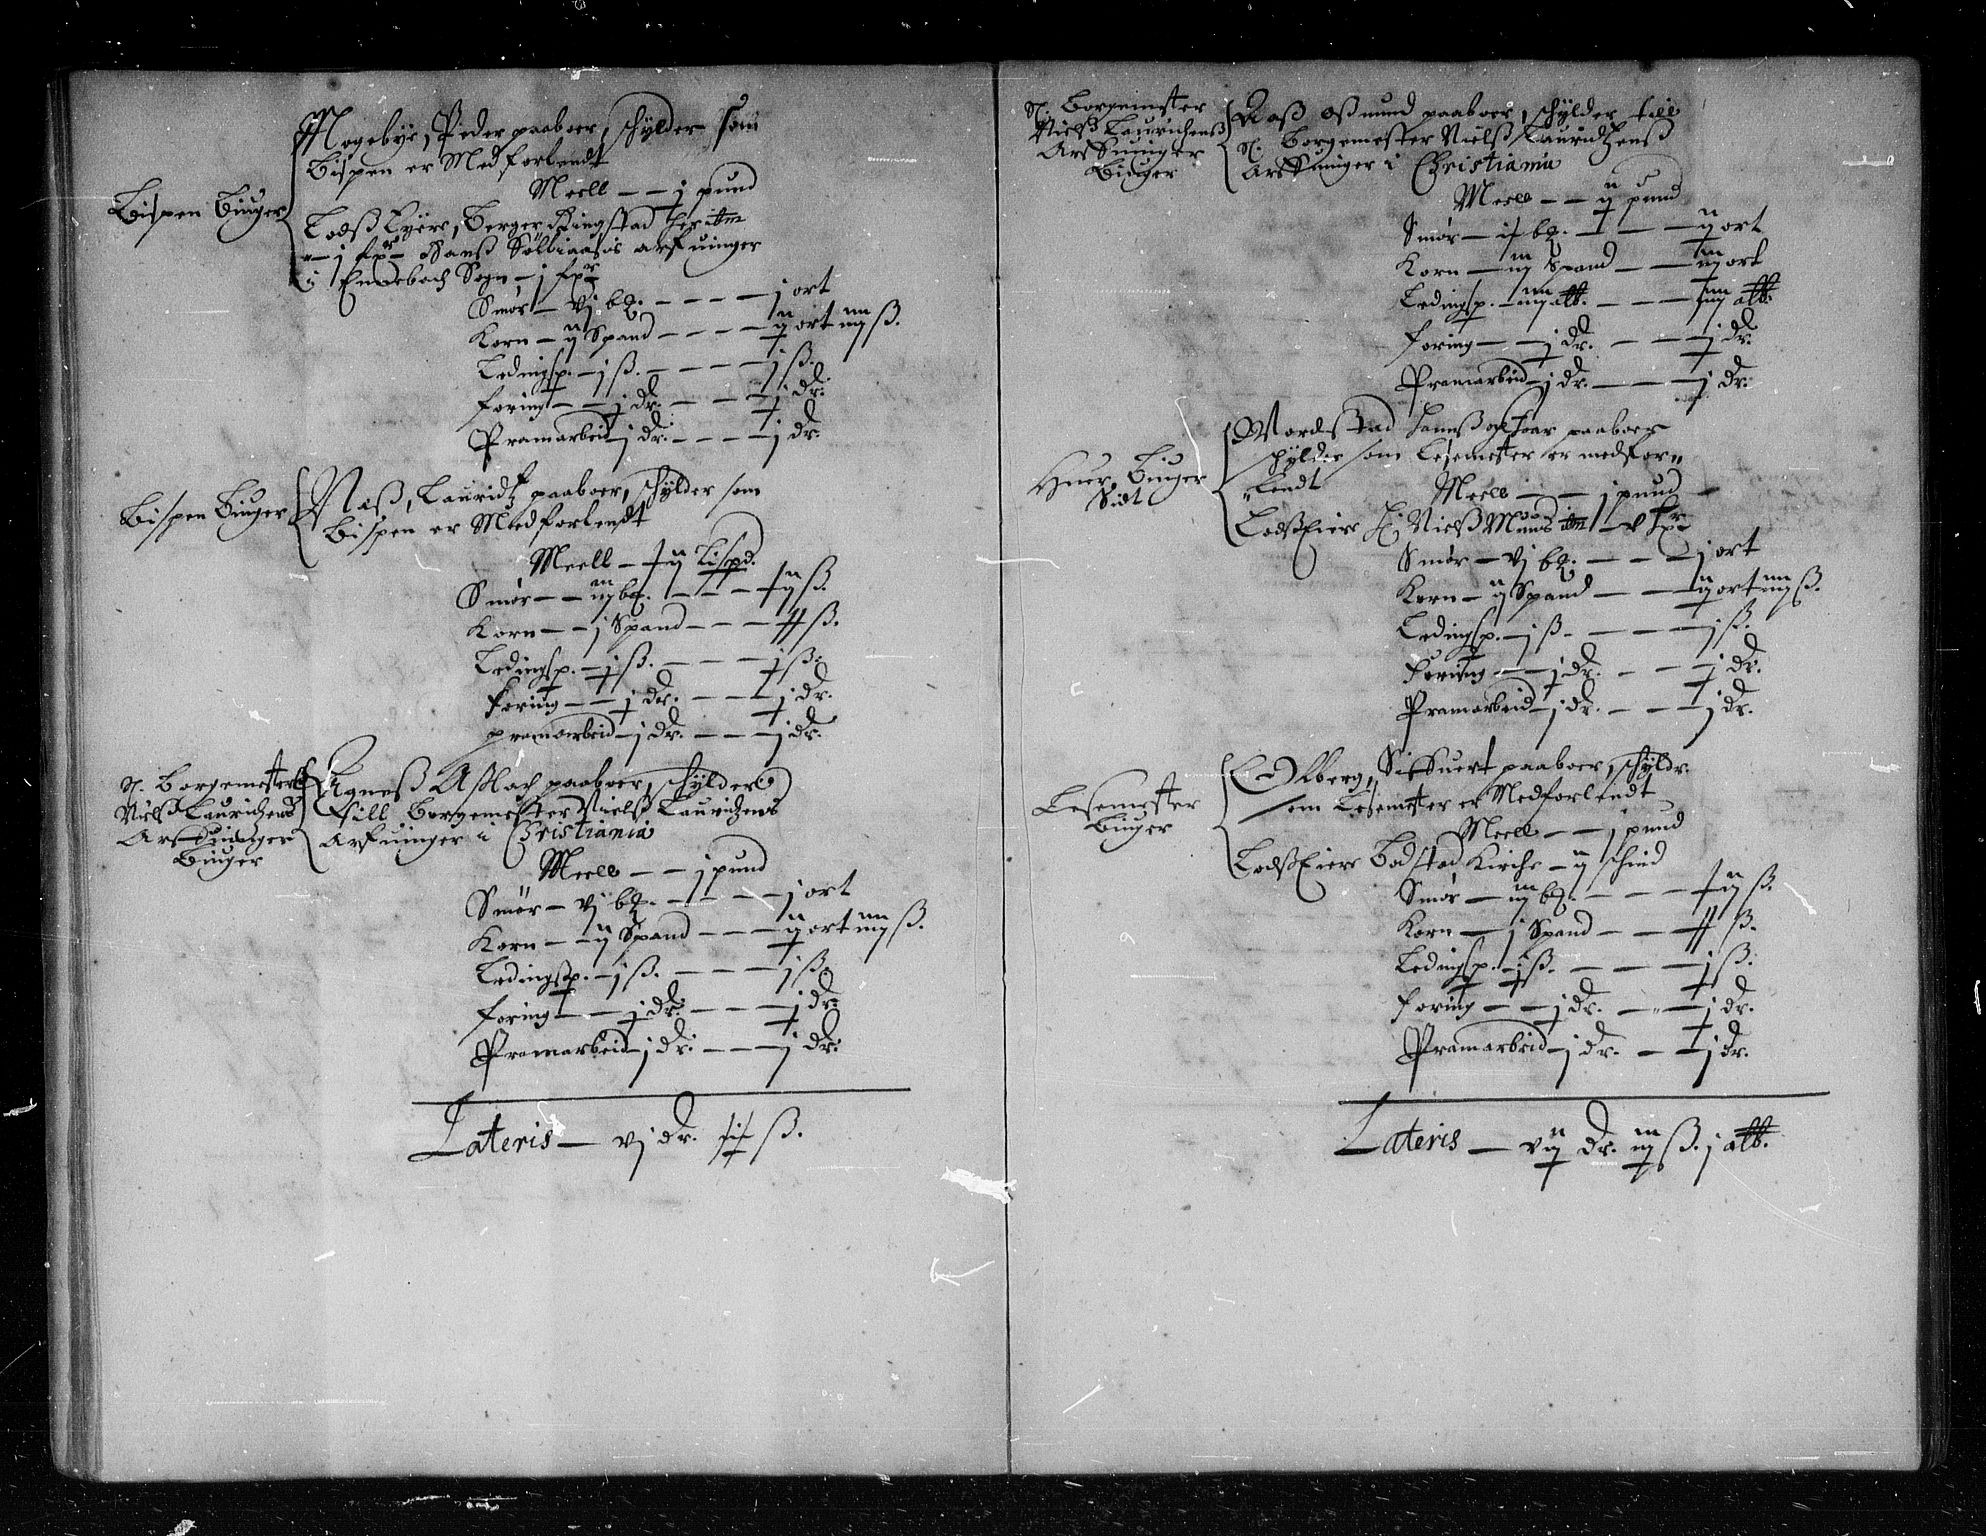 Bispen Biuger
Mogebye, Peder paaboer, schÿlder som
Bispen er Medforlendt
Meell — — j pund
Lodß Eyere, Berger Ringstad her itm
— j fpr Hanß Sølbiaaes arfuinger
i Enebach Sogn — j fpr
Smør — vj bp. — — — j ort
Korn — ij Spand — — — ij ort iiij ß.
Ledingsp. — j ß. — — — j ß.
foring — — j dr. — — — j dr.
Pramarbeid — j dr. — — — j dr.
Bispen Biuger
Næß, Lauridtz paaboer, schÿlder som
Bispen er Medforlendt
Meell — ij Lispd.
Smør — — iij bp. — — — ij ß.
Korn — — j Spand — — — ß.
Ledingsp. — j ß. — — — j ß.
foring — — j dr. — — — j dr.
pramarbeid — j dr. — — — j dr.
Sl. Borgemester
Nielß Lauritzens
Arfuinger
Biuger
Agneß Aßlach paaboer, schÿlder
till Borgemester Nielß Lauritzens
Arfuinger i Christiania
Meell — — j pund
Smør — vj bp. — — — j ort
Korn — — ij Spand — — — ij ort iiij ß.
Ledingsp. — j ß. — — — j ß.
foring — — j dr. — — — j dr.
Pramarbeid — j dr. — — — j dr.
Lateris — vj dr. ß.
Sl. Borgemester
Nielß Lauritzenß
Arfuinger
Biuger
Aaß Oßmund paaboer, schÿlder till
Sl. Borgemester Nielß Lauridtzenß
Arfuinger i Christiania
Meell — — ij pund
Smør — bp. — — — ij ort
Korn — iij Spand — — iij ort
Ledingsp. — iiij alb. — — — iiij alb.
foring — — j dr. — — j dr.
Pramarbeid — j dr. — — — j dr.
Huer Biuger
Sidt
Nordstad Hanß och Joar paaboer
schÿlder som Lesemester er medfor„
„lendt
Meell — — j pund
Lodß Eiere H. Nielß Muus itm — v fpr
Smør — vj bp. — — — j ort
Korn — ij Spand — — — ij ort iiij ß.
Ledingsp. — j ß. — — — j ß.
foring — — j dr. — — — j dr.
Pramarbeid — j dr. — — — j dr.
Lesemester
Biuger
Edlberg, Sifuert paaboer, schÿldr.
som Lesemester er Medforlendt
Meell — — j pund
Lodß Eiere Bodstad Kirche — ij schind
Smør — iij bp. — — — ij ß.
Korn — j Spand — — ß.
Ledingsp. — j ß. — — — j ß.
foring — — j dr. — „ — j dr.
Pramarbeid — j dr. — — j dr.
Lateris — vij dr. iij ß. j alb.